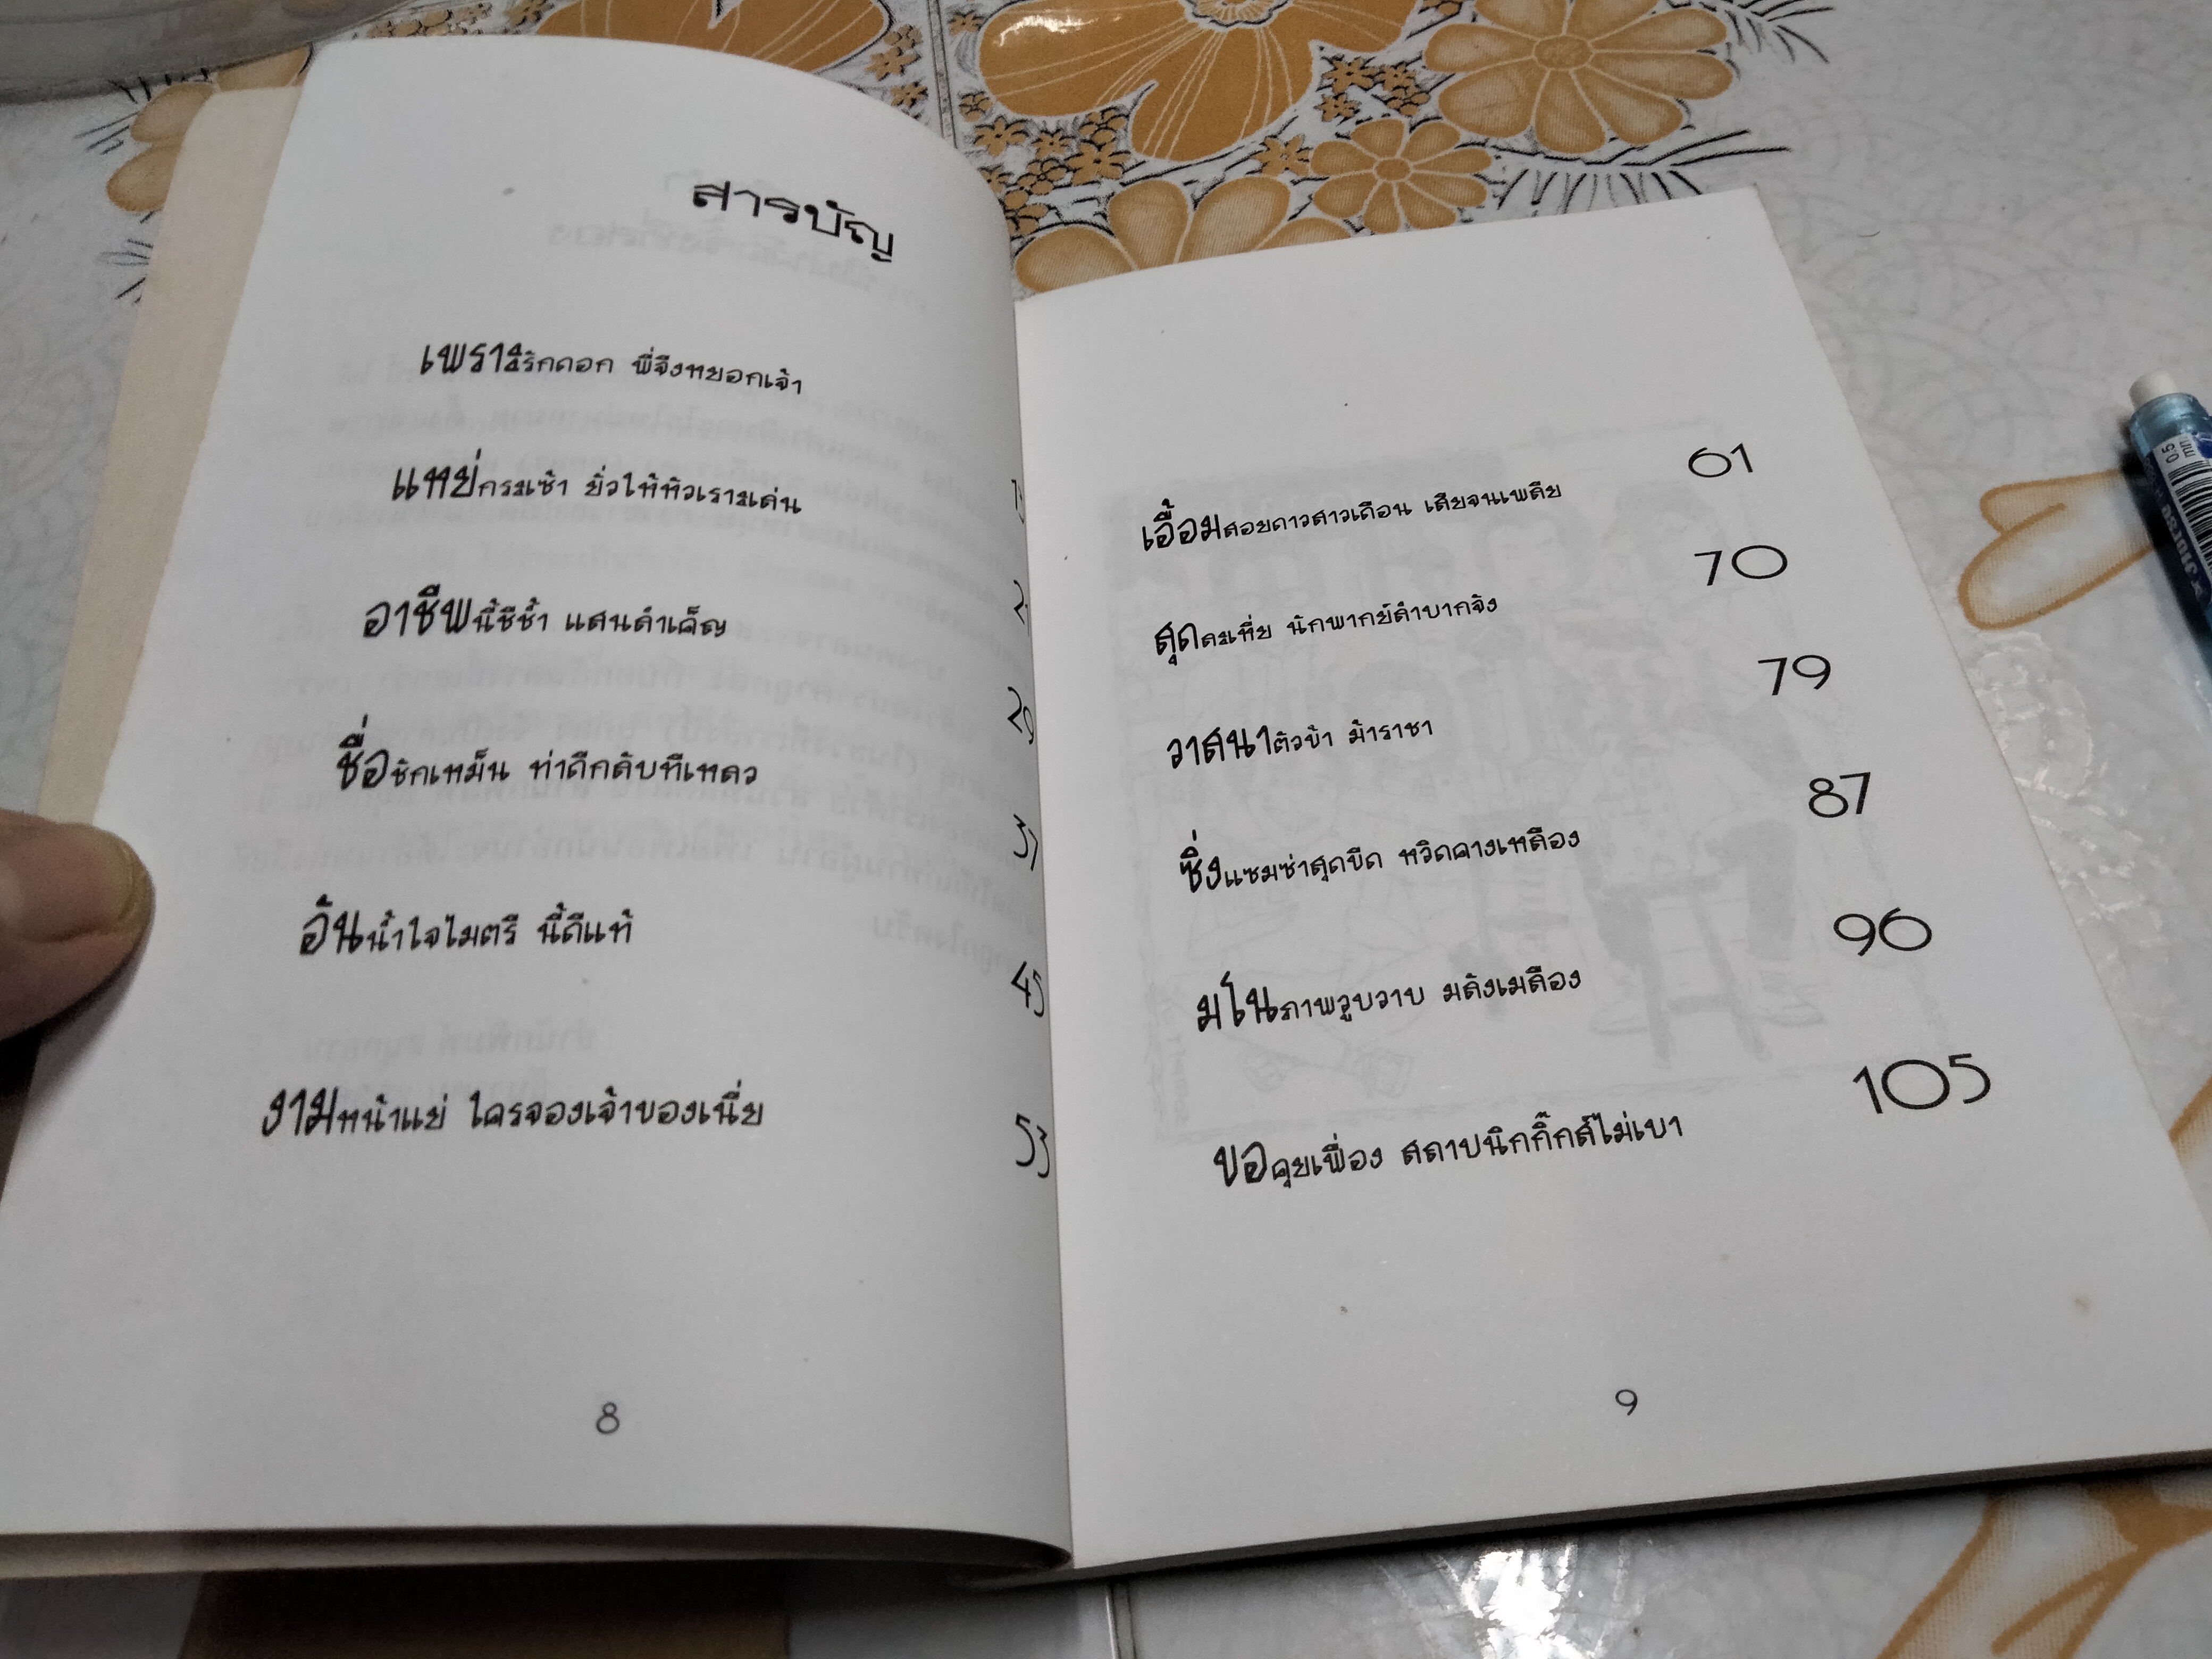 สารบัญ
เพราะริกดอก พี่จึงหยอกเจ้า
แหย่กระเซ้า ยั่วให้หัวเราะเล่น
อาชีพนี้ชีช้ำ แสนลำเค็ญ
29
ชื่อชิกเหม็น ท่าดีกลับทีเหลว
37
อันน้ำใจไมตรี นี้ดีแท้
45
งามหน้าแย่ ใครจองเจ้าของเนี่ย
53
8
61
เอื้อมสอยดาวสาวเดือน เสียจนเพลีย
70
สุดละเหี่ย นักพากย์ลำบากจัง
79
วาสนาตัวข้า ม้าราชา
87
ซิ่งแซมซ่าสุดขีด หวีดคางเหลือง
96
มโนภาพวูบวาบ มลังเมลือง
105
ขอคุยเฟื่อง สถาบนิกกิ๊กส์ไม่เบา
9
0.5
mm